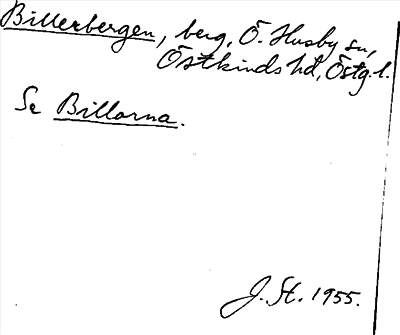 Billerbergen, berg, Ö. Husby sn,
Östkinds hd, Östg. l.
Se Billorna.
J. St. 1955.